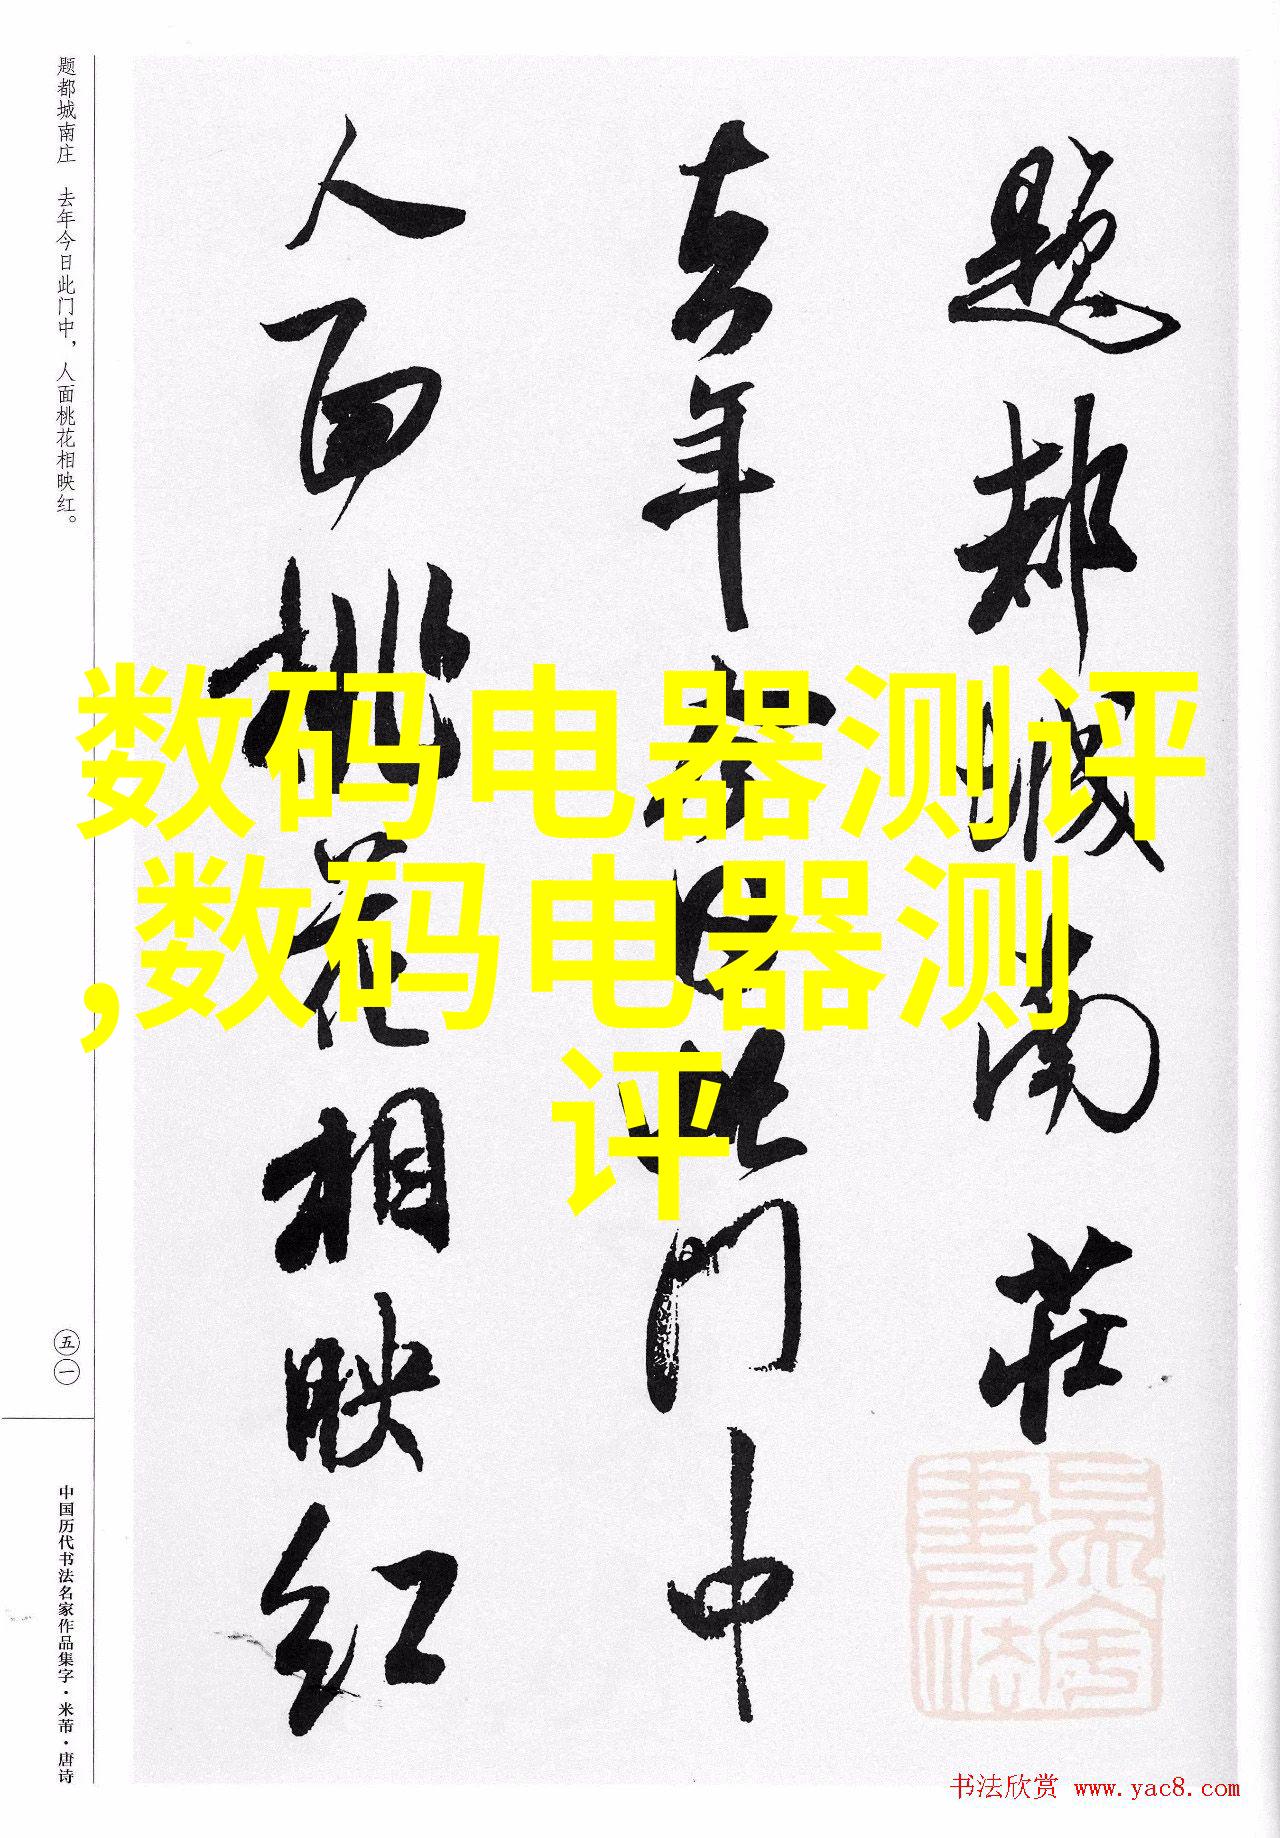 题都城南庄　去年今日此门中，人面桃花相映红。
題都城南莊
去年今日此門中
人面桃花相映红
数码电器测评
,数码电器测
评
五一
中国历代书法名家作品集字·米芾·唐诗
书法欣赏 www.yac8.com